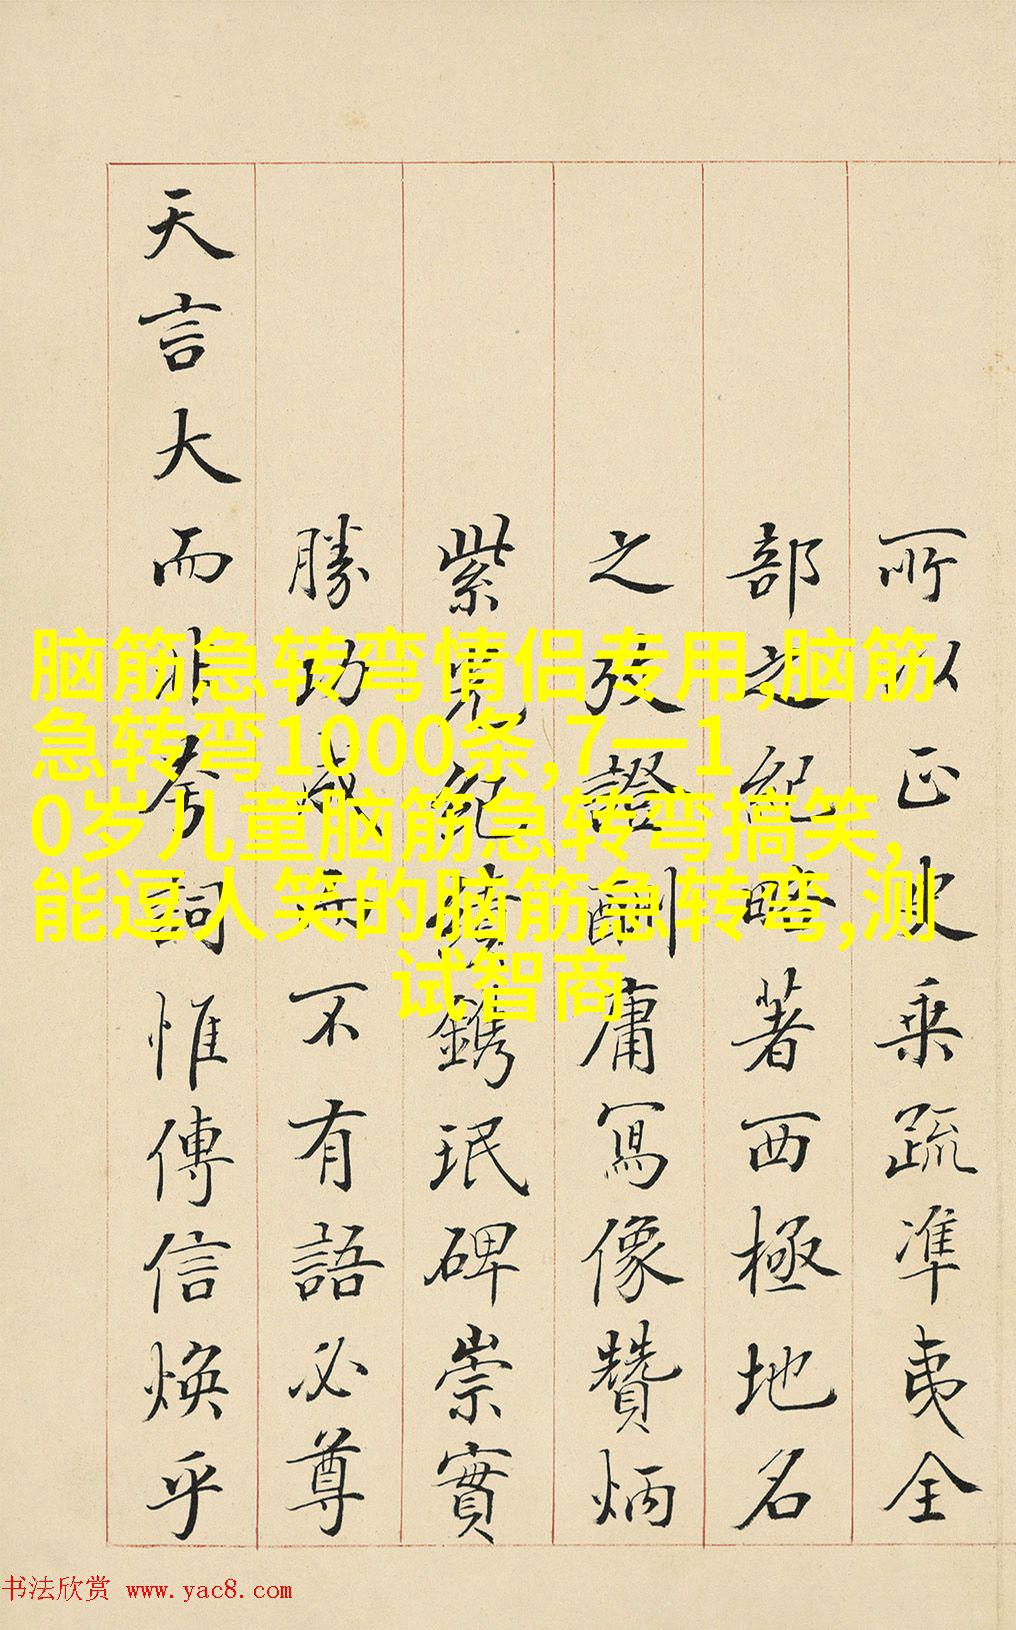 所以正史乘疏準夷全
部之紀略著西極地名
之攷證酬庸寫像贊炳
紫光紀績鐫珉碑崇實
勝功成而不有語必尊
天言大而非夸詞惟傳信煥乎
脑筋急转弯情侣专用,脑筋
急转弯1000条,7一1
0岁儿童脑筋急转弯搞笑,
能逗人笑的脑筋急转弯,测
试智商
书法欣赏 www.yac8.com